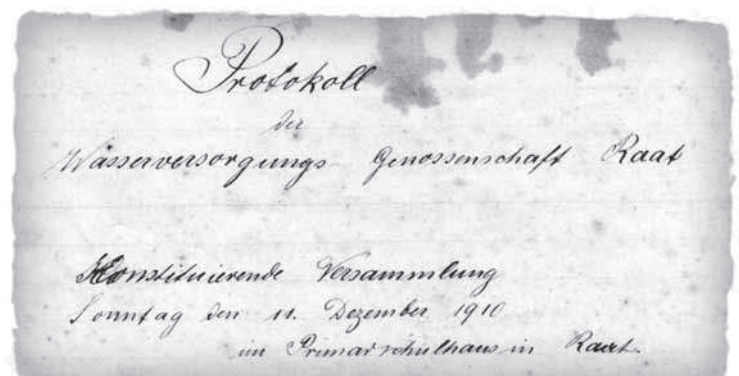 Protokoll
der
Wasserversorgungs Genossenschaft Raat
Konstituierende Versammlung
Sonntag den 11. Dezember 1910
im Primarschulhaus in Raat.